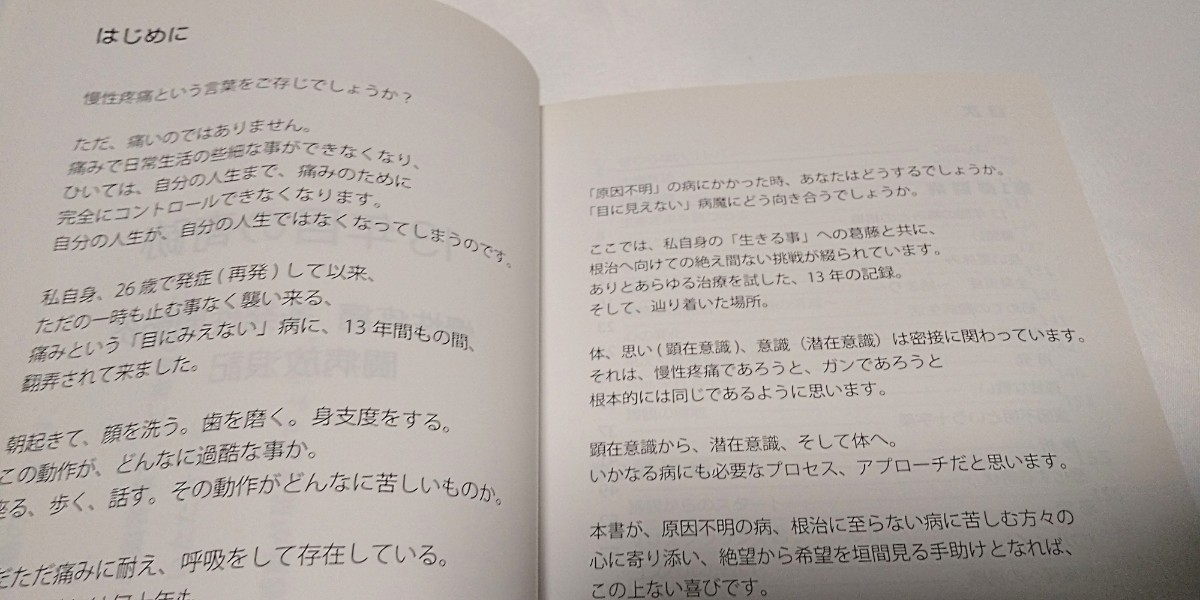 はじめに
慢性疼痛という言葉をご存じでしょうか？
ただ、痛いのではありません。
痛みで日常生活の些細な事ができなくなり、
ひいては、自分の人生まで、痛みのために
完全にコントロールできなくなります。
自分の人生が、自分の人生ではなくなってしまうのです。
私自身、26歳で発症(再発)して以来、
ただの一時も止む事なく襲い来る、
痛みという「目にみえない」病に、13年間もの間、
翻弄されて来ました。
朝起きて、顔を洗う。歯を磨く。身支度をする。
この動作が、どんなに過酷な事か。
座る、歩く、話す。その動作がどんなに苦しいものか。
ただ痛みに耐え、呼吸をして存在している。
「原因不明」の病にかかった時、あなたはどうするでしょうか。
「目に見えない」病魔にどう向き合うでしょうか。
ここでは、私自身の「生きる事」への葛藤と共に、
根治へ向けての絶え間ない挑戦が綴られています。
ありとあらゆる治療を試した、13年の記録。
そして、辿り着いた場所。
体、思い(顕在意識)、意識（潜在意識）は密接に関わっています。
それは、慢性疼痛であろうと、ガンであろうと
根本的には同じであるように思います。
顕在意識から、潜在意識、そして体へ。
いかなる病にも必要なプロセス、アプローチだと思います。
本書が、原因不明の病、根治に至らない病に苦しむ方々の
心に寄り添い、絶望から希望を垣間見る手助けとなれば、
この上ない喜びです。